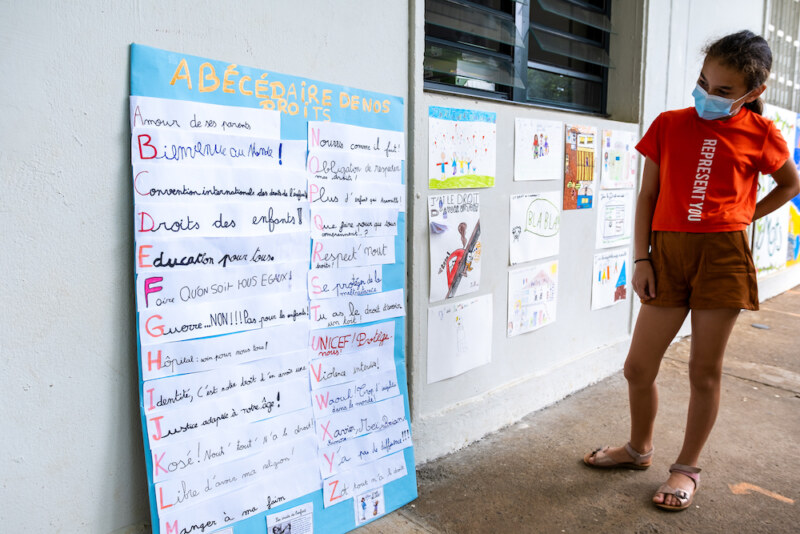 ABÉCÉDAIRE DE NOS
DROITS
Amour de ses parents
Bienvenue au Monde !
Convention internationale des droits de l'enfant
Droits des enfants !!
Education pour tous
Faire QU'ON SOIT TOUS EGAUX !
Guerre...NON!!! Pas pour les enfants
Hôpital : soin pour nous tous !
Identité, c'est notre droit d'en avoir une
Justice adaptée à notre âge !
Kosé ! Nout' tout' n'a le droit !
Libre d'avoir ma religion !
Manger à ma faim
Nourrie comme il faut !
Obligation de respecter
mes droits !
Plus d'enfant qui travaille !
Que faire pour que tous
Respect' Nout'
droits !
Se protéger de la
maltraitance
Tu as le droit d'avoir
un toit !
UNICEF ! Protège
nous !
Violence interdite !
Waouh ! Trop d'enfants
dans le monde !
Xavier, Moi,
Y'a pas de différence !!!
Zot tout n'a le droit
J'AI LE DROIT
BLA BLA
REPRESENT
YOU